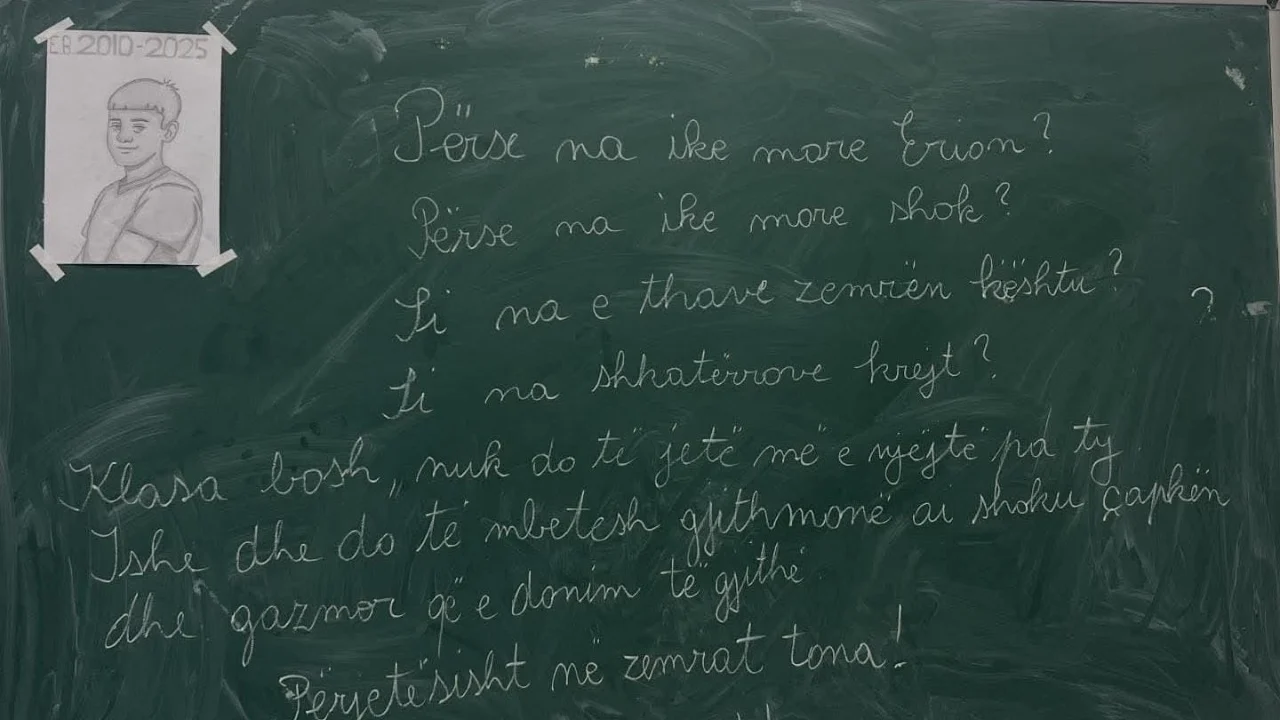 EB 2010-2025
Përse na ike more Erion?
Përse na ike more shok?
Si na e thave zemrën kështu?
?
Si na shkatërrove krejt?
Klasa bosh, nuk do të jetë më e njëjtë pa ty
Ishe dhe do të mbetesh gjithmonë ai shoku çapkën
dhe gazmor që e donim të gjithë
Përjetësisht në zemrat tona!